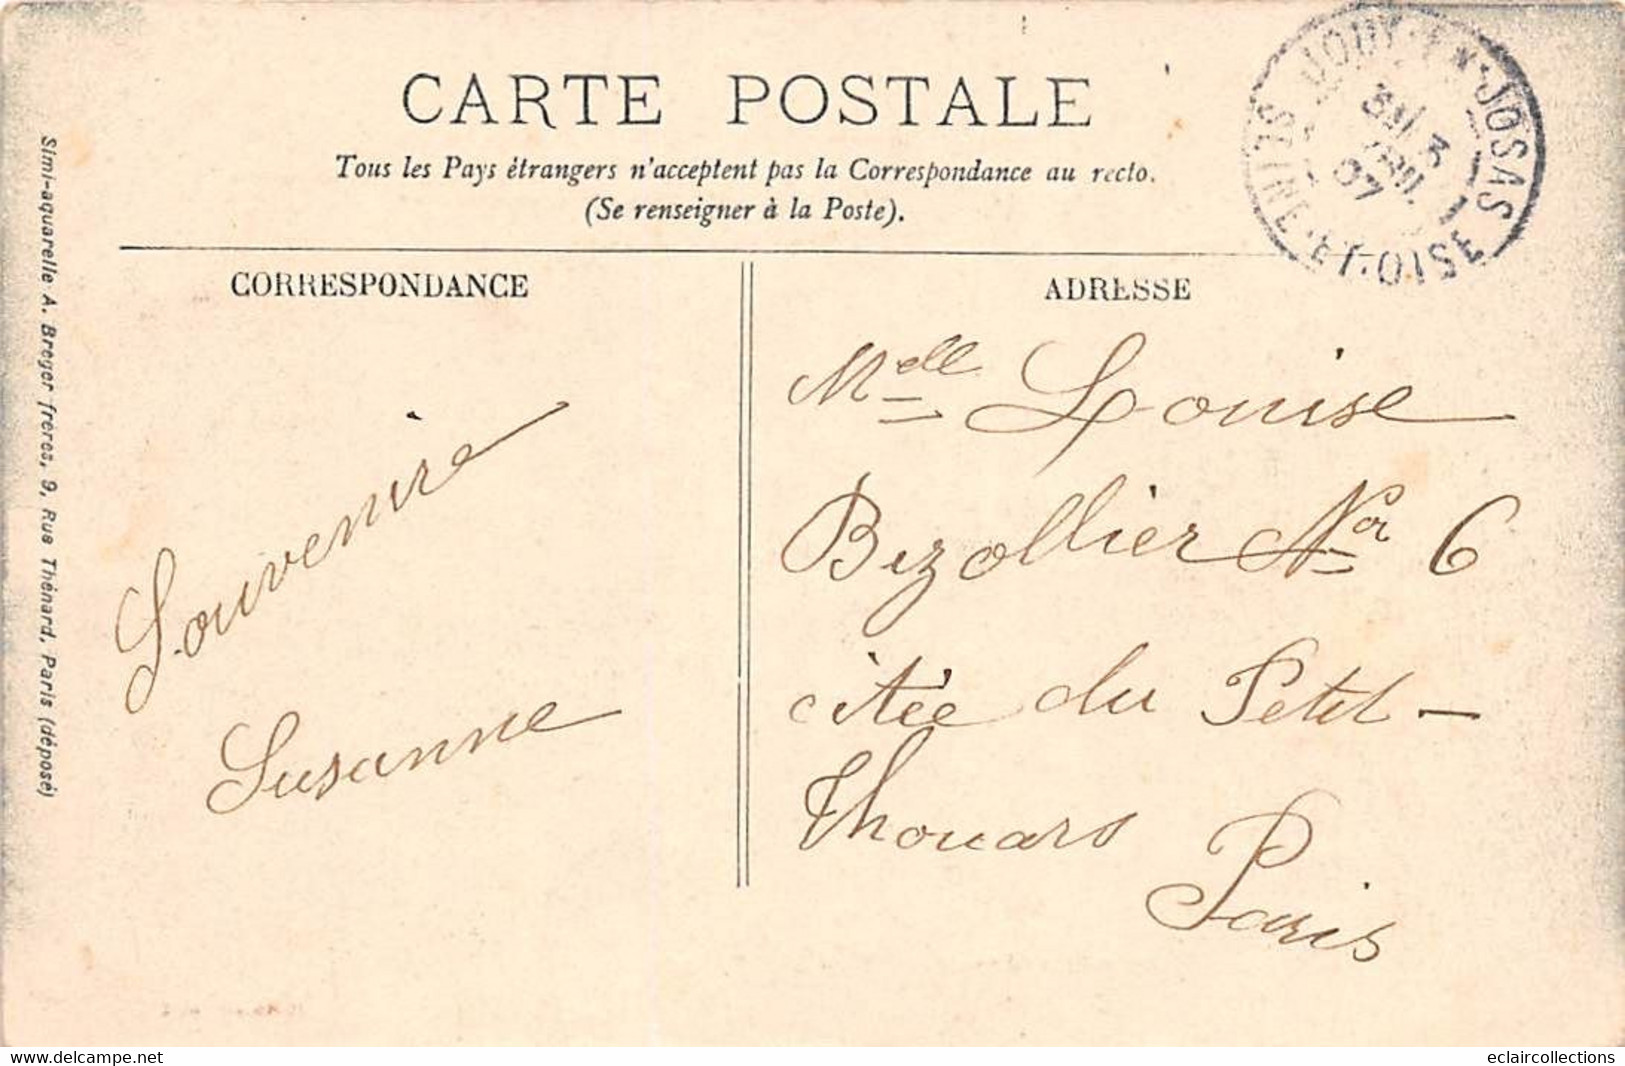 CARTE POSTALE
Tous les Pays étrangers n'acceptent pas la Correspondance au recto.
(Se renseigner à la Poste).
JOUY-EN-JOSAS
SEINE-ET-OISE
07
CORRESPONDANCE
Souvenire
Susanne
ADRESSE
Melle Louise
Bezollier Nor 6
citée du Petit-
Thouars
Paris
Simi-aquarelle A. Breger frères, 9, Rue Thénard, Paris (déposé)
www.delcampe.net
eclaircollections